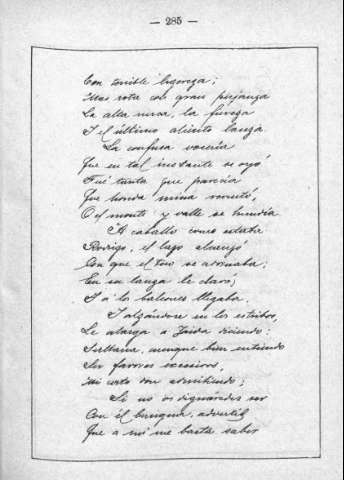 — 285 —
Con terrible ligereza;
Mas rota con gran pujanza
La alta nuca, la fiereza
I el último aliento lanza
La confusa vocería
Que en tal instante se oyó
Fué tanta que parecía
Que honda mina reventó,
O el monte y valle se hundía
A caballo como estaba
Rodrigo, el lazo alcanzó
Con que el toro se adornaba;
En su lanza le clavó,
I a los balcones llegaba.
I alzándose en los estribos,
Le alarga a Zaida diciendo:
Sultana, aunque bien entiendo
Ser favores excesivos,
mi corto don admitiendo;
Si no os dignáredes ser
Con él benigna, advertid
Que a mí me basta saber